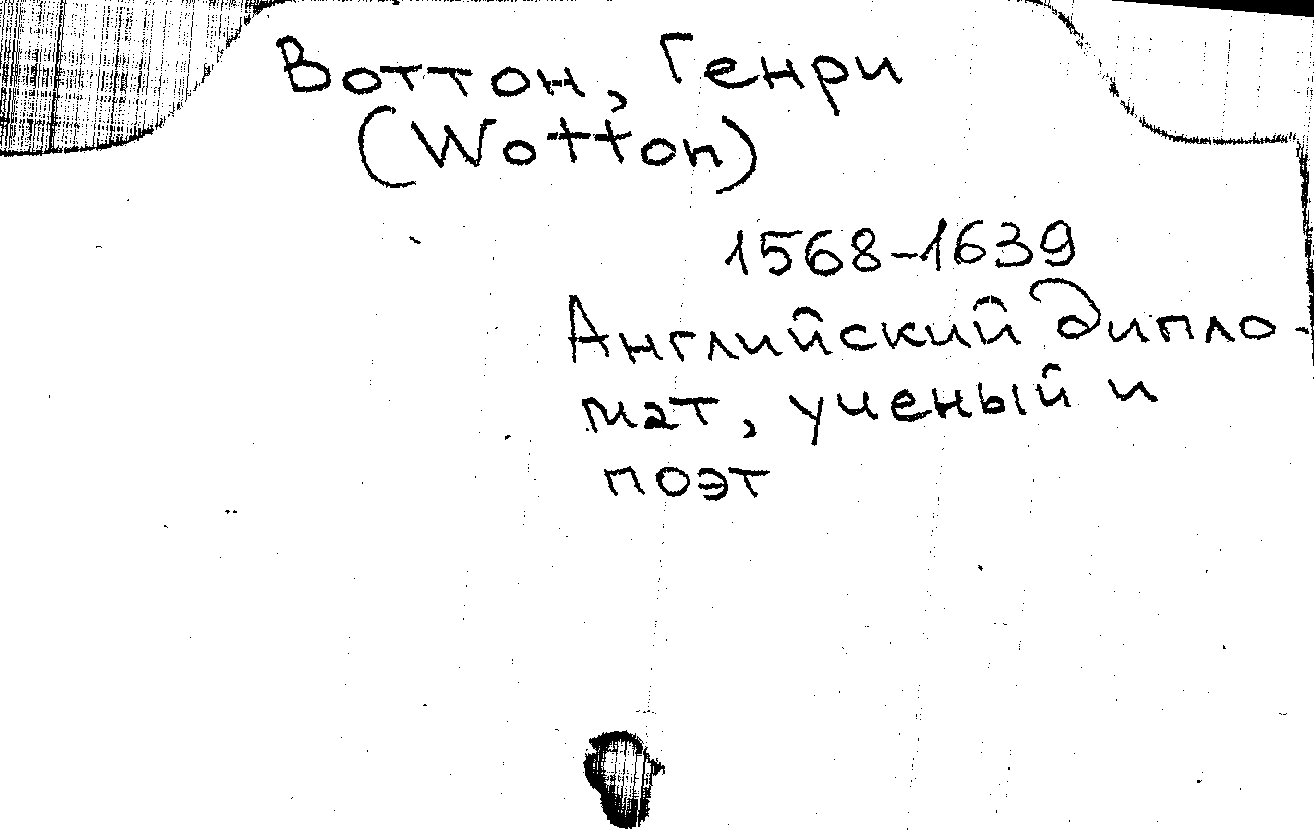 Воттон, Генри
(Wotton)
1568-1639
Английский дипло-
мат, ученый и
поэт